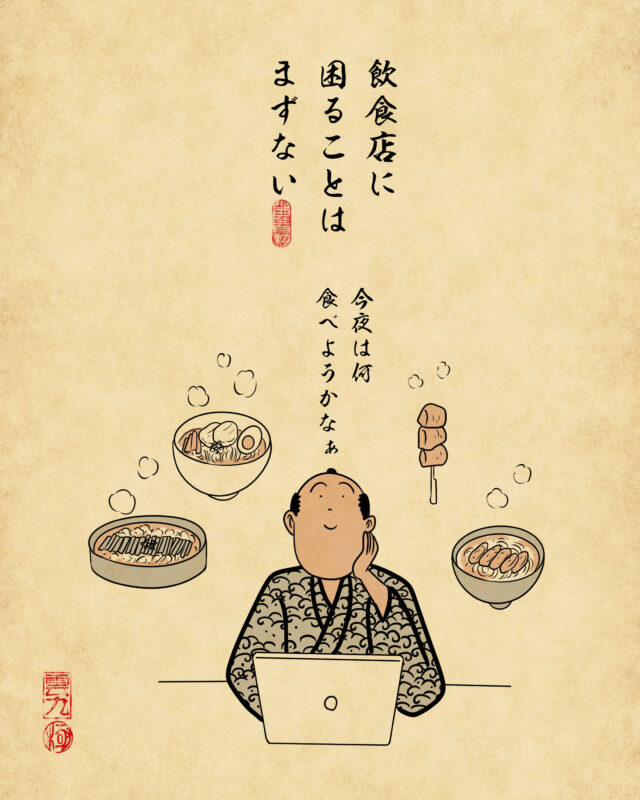 飲食店に
困ることは
まずない
今夜は何
食べようかなぁ